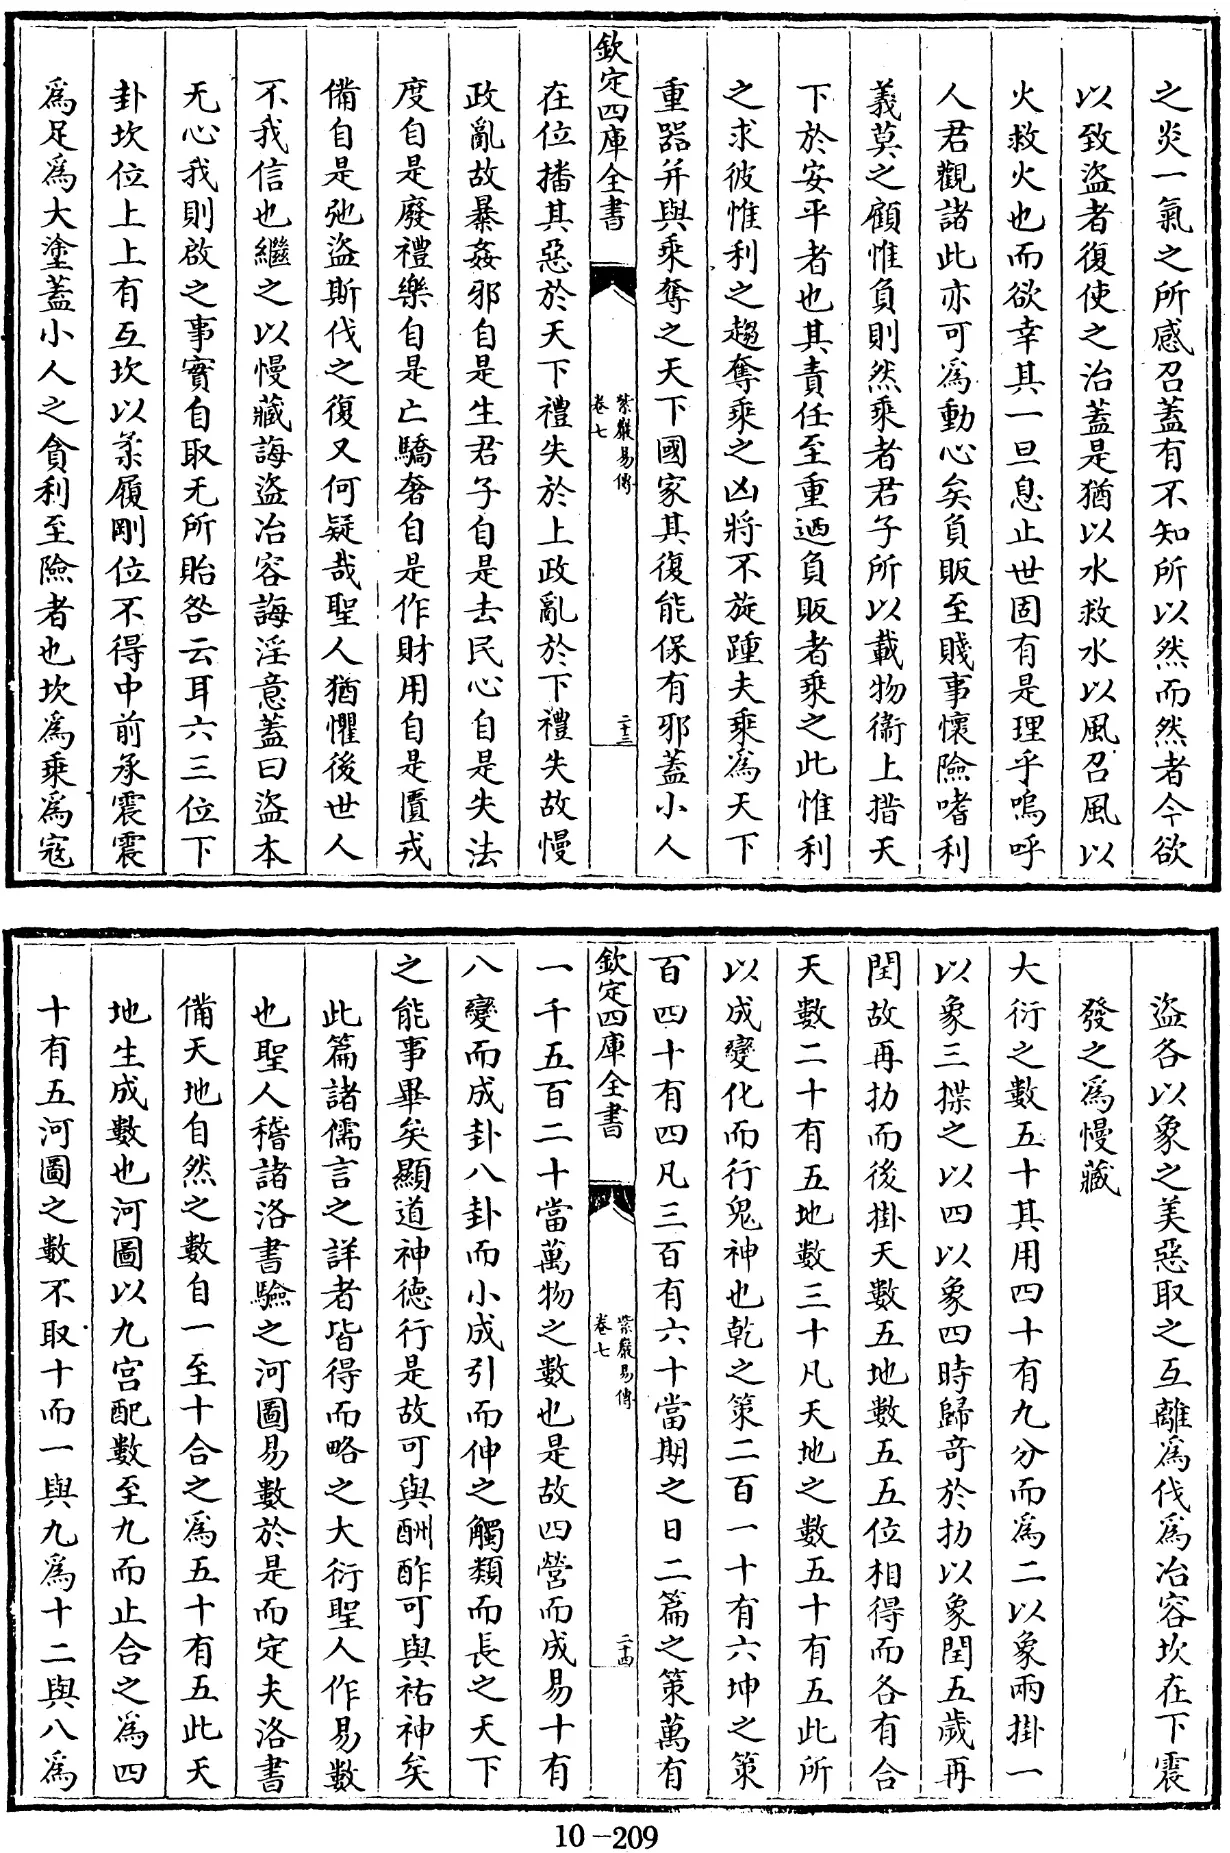 之炎一氣之所感召蓋有不知所以然而然者今欲
以致盜者復使之治蓋是猶以水救水以風召風以
火救火也而欲幸其一旦息止世固有是理乎嗚呼
人君觀諸此亦可為動心矣負販至賤事懷險嗜利
義莫之顧惟負則然乘者君子所以載物衛上措天
下於安平者也其責任至重迺負販者乘之此惟利
之求彼惟利之趨奪乘之凶將不旋踵夫乘為天下
重器并與乘奪之天下國家其復能保有邪蓋小人
欽定四庫全書
紫巖易傳
卷七
二十三
在位播其惡於天下禮失於上政亂於下禮失故慢
政亂故暴姦邪自是生君子自是去民心自是失法
度自是廢禮樂自是亡驕奢自是作財用自是匱戎
備自是弛盜斯伐之復又何疑哉聖人猶懼後世人
不我信也繼之以慢藏誨盜冶容誨淫意蓋曰盜本
无心我則啟之事實自取无所貽咎云耳六三位下
卦坎位上上有互坎以柔履剛位不得中前承震震
為足為大塗蓋小人之貪利至險者也坎為乘為寇
盜各以象之美惡取之互離為伐為冶容坎在下震
發之為慢藏
大衍之數五十其用四十有九分而為二以象兩掛一
以象三揲之以四以象四時歸奇於扐以象閏五歲再
閏故再扐而後掛天數五地數五五位相得而各有合
天數二十有五地數三十凡天地之數五十有五此所
以成變化而行鬼神也乾之策二百一十有六坤之策
百四十有四凡三百有六十當期之日二篇之策萬有
欽定四庫全書
紫巖易傳
卷七
二十四
一千五百二十當萬物之數也是故四營而成易十有
八變而成卦八卦而小成引而伸之觸類而長之天下
之能事畢矣顯道神德行是故可與酬酢可與祐神矣
此篇諸儒言之詳者皆得而略之大衍聖人作易數
也聖人稽諸洛書驗之河圖易數於是而定夫洛書
備天地自然之數自一至十合之為五十有五此天
地生成數也河圖以九宮配數至九而止合之為四
十有五河圖之數不取十而一與九為十二與八為
10-209